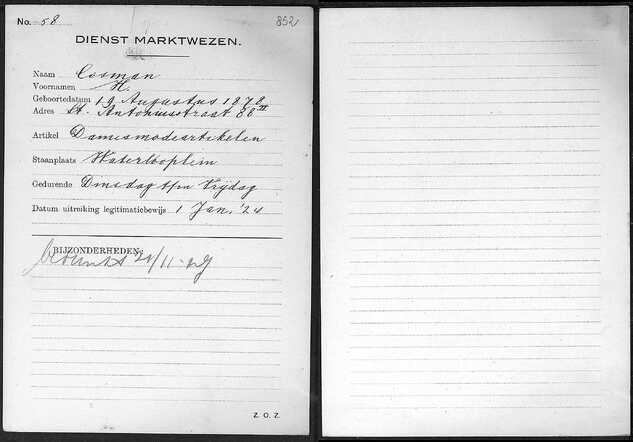 No. 58 852
DIENST MARKTWEZEN.
Naam Cosman
Voornamen H.
Geboortedatum 19 Augustus 1878
Adres St. Antoniesstraat 88 III
Artikel Damesmodeartikelen
Staanplaats Waterlooplein
Gedurende Dinsdag t/m Vrijdag
Datum uitreiking legitimatiebewijs 1 Jan. '24
BIJZONDERHEDEN:
Z. O. Z.